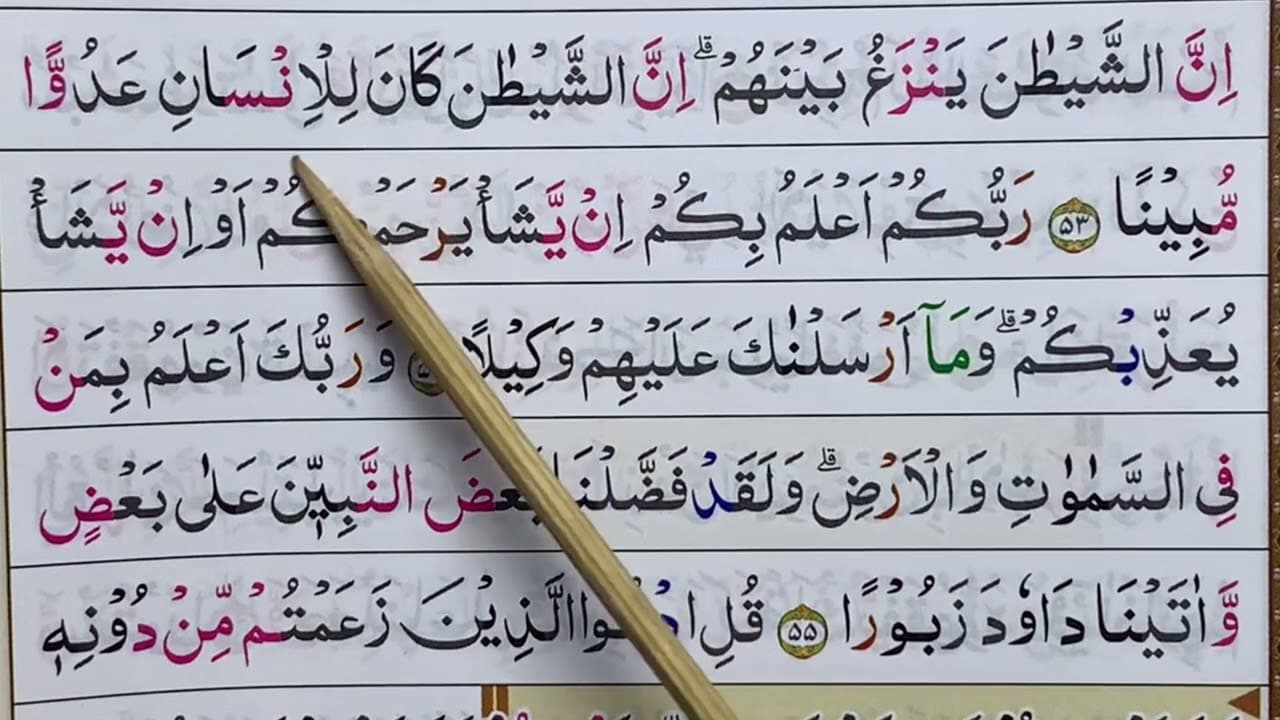 اِنَّ الشَّيْطٰنَ يَنْزَغُ بَيْنَهُمْ ۗ اِنَّ الشَّيْطٰنَ كَانَ لِلْاِنْسَانِ عَدُوًّا
مُّبِيْنًا ۵۳ رَبُّكُمْ اَعْلَمُ بِكُمْ اِنْ يَّشَأْ يَرْحَمْكُمْ اَوْ اِنْ يَّشَأْ
يُعَذِّبْكُمْ ۗ وَمَآ اَرْسَلْنٰكَ عَلَيْهِمْ وَكِيْلًا وَرَبُّكَ اَعْلَمُ بِمَنْ
فِى السَّمٰوٰتِ وَالْاَرْضِ ۗ وَلَقَدْ فَضَّلْنَا بَعْضَ النَّبِيّٖنَ عَلٰى بَعْضٍ
وَّاٰتَيْنَا دَاوٗدَ زَبُوْرًا ۵۵ قُلِ الَّذِيْنَ زَعَمْتُمْ مِّنْ دُوْنِهٖ